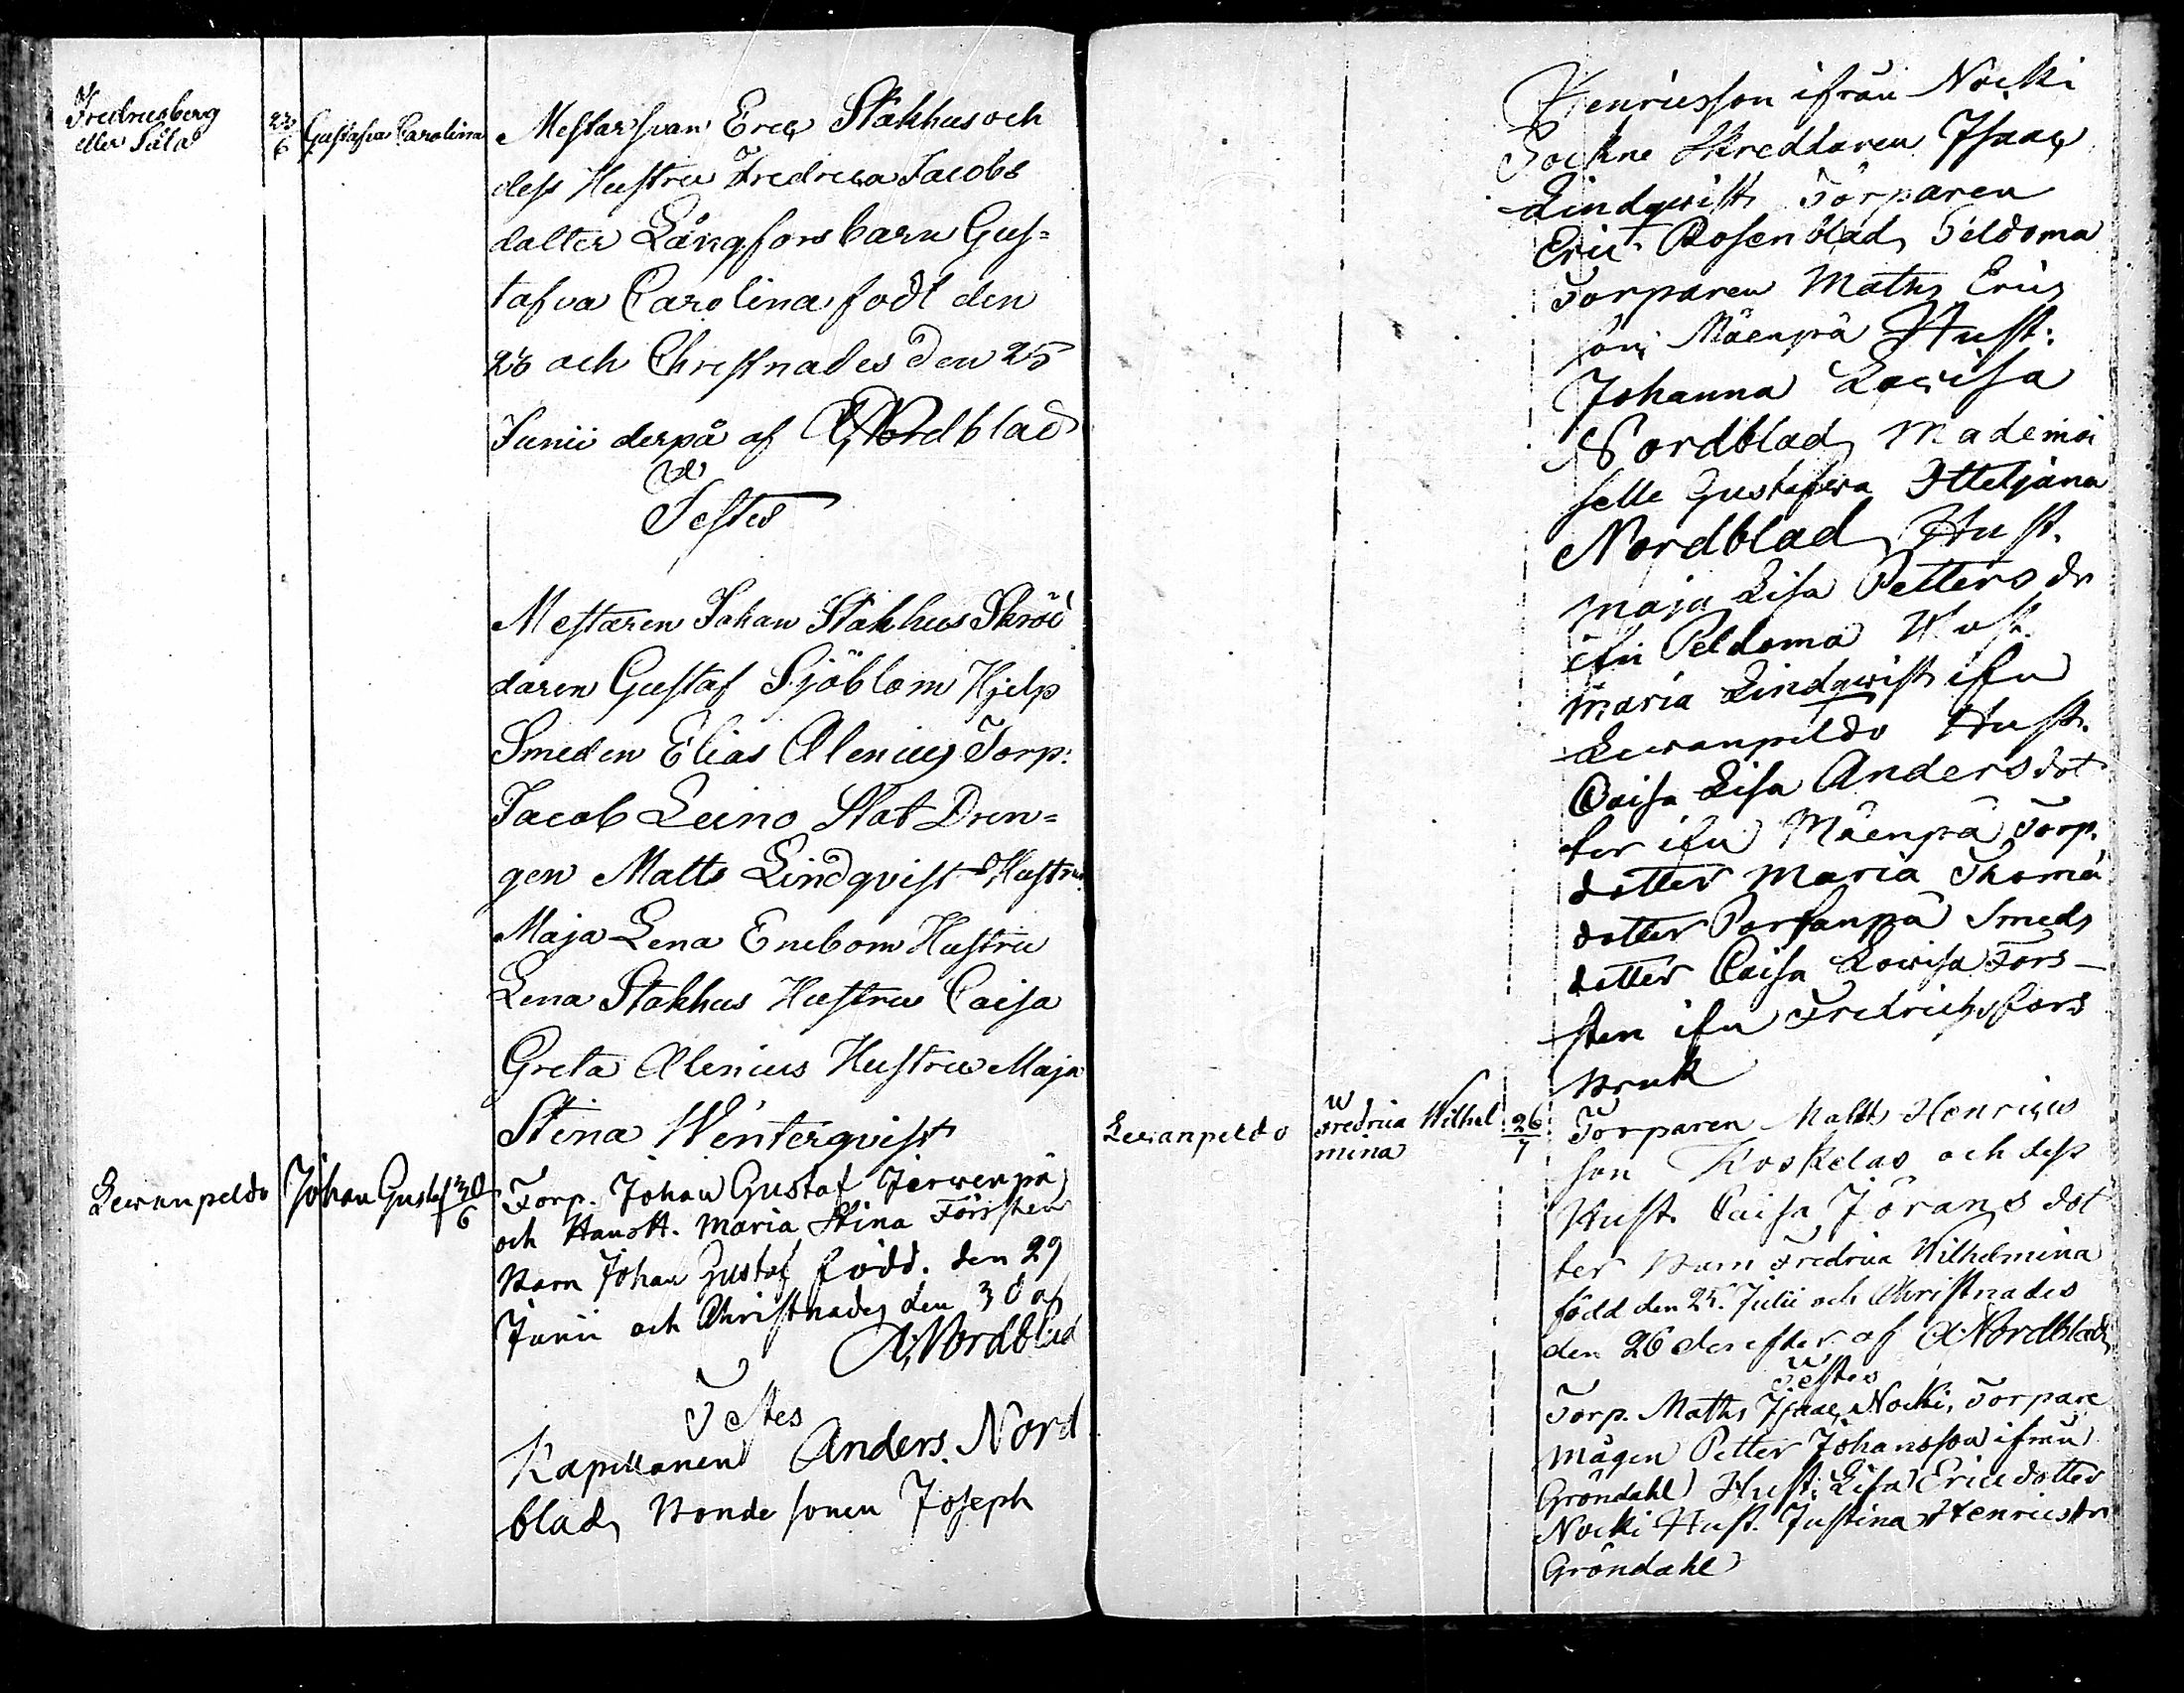 Fredricsberg
eller Såla
23
6
Gustafva Carolina
Mestarsvan Eric Stakhus och
dess Hustru Fredrica Jacobs
dotter Långfors barn Gus=
tafva Carolina födt den
23 och Christnades den 25
Junii derpå af A Nordblad
Testes
Mestaren Johan Stakhus Skröd
daren Gustaf Sjöblom Hjelp
Smeden Elias Alenius Torp:
Jacob Leino Stat Dren=
gen Matts Lindqvist Hustru
Maja Lena Enebom Hustru
Lena Stakhus Hustru Caisa
Greta Alenius Hustru Maja
Stina Winterqvist
Lewanpeldo
Johan Gustaf
30
6
Torp. Johan Gustaf Jerwenpä
och Hust. Maria Stina Forsten
Barn Johan Gustaf född. den 29
Junii och Christnades den 30 af
A; Nordblad
Testes
Kapellanen Anders Nord
blad, Bonde sonen Joseph
Henricsson ifrån Nocki
Sockne Skreddaren Isaac
Lindqwist, Torparen
Eric Rosenblad, Peldoma
Torparen Maths Erics
son; Mäenpä Hust:
Johanna Lowisa
Nordblad, Mademoi
selle Gustafwa Ottiljana
Nordblad, Hust.
Maja Lisa Petters dr
ifn Peldoma Hust.
Maria Lindqwist ifn
Lewanpeldo Hust.
Caisa Lisa Anders dot
ter ifn Mäenpä Torp.
dotter Maria Thomä
dotter Porsanpä Smeds
dotter Caisa Lowisa Fors-
sten ifn Fredrichsfors
Bruk
Lewanpeldo
Fredrica Wilhel
mina
26
7
Torparen Matts Henrics
son Koskelas och dess
Hust. Caisa Jörans dot
ter Barn Fredrica Wilhelmina
född den 25. Julii och Christnades
den 26 derefter af A Nordblad,
Testes
Torp. Maths Isaac, Nocki, Torpare
mågen Petter Johansson ifrån
Gröndahl Hust; Lisa Erics dotter
Nocki Hust. Justina Henricsdr
Gröndahl